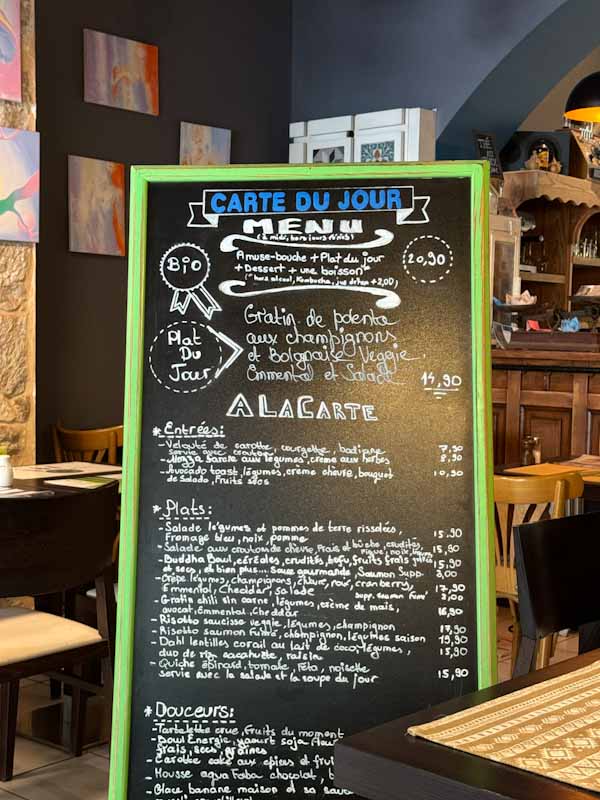 CARTE DU JOUR
MENU
(à midi, hors jours fériés)
Bio
Amuse-bouche + Plat du jour
+ Dessert + une boisson*
(* hors alcool, Kombucha, jus detox +2,00)
20,90
Plat
Du
Jour
Gratin de polenta
aux champignons
et Bolognaise Veggie,
Emmental et Salade
14,90
A LA CARTE
* Entrées:
- Velouté de carotte, courgette, badiane
servie avec croutons 7,90
- Mozza Sarde aux légumes, crème aux herbes 8,90
- Avocado toast, légumes, crème chèvre, bouquet 10,90
de Salade, Fruits secs
* Plats:
- Salade légumes et pommes de terre rissolées,
Fromage bleu, noix, pomme 15,90
- Salade aux croutons de chèvre frais et bûche, crudités,
Figue, noix, 15,90
- Buddha Bowl, céréales, crudités, tofu, fruits frais
et secs, et bien plus... Sauce gourmande, Saumon Supp. 3,00
- Crêpe légumes, champignons, chèvre, noix, cranberry
Emmental, Cheddar, salade 17,90
supp. saumon fumé 3,00
- Gratin chili sin carne, légumes, crème de maïs,
avocat, Emmental, Cheddar 16,90
- Risotto saucisse veggie, légumes, champignon 17,90
- Risotto saumon fumé, champignon, légumes saison 19,90
- Dahl lentilles corail au lait de coco, légumes, 15,90
duo de riz, cacahuète, raisin
- Quiche épinard, tomate, feta, noisette
servie avec la salade et la soupe du jour 15,90
* Douceurs:
- Tartelette crue, Fruits du moment
- Bowl Energie, yaourt soja
frais, secs, graines
- Carotte cake aux épices et
- Mousse aqua Faba chocolat,
- Glace banane maison et sa